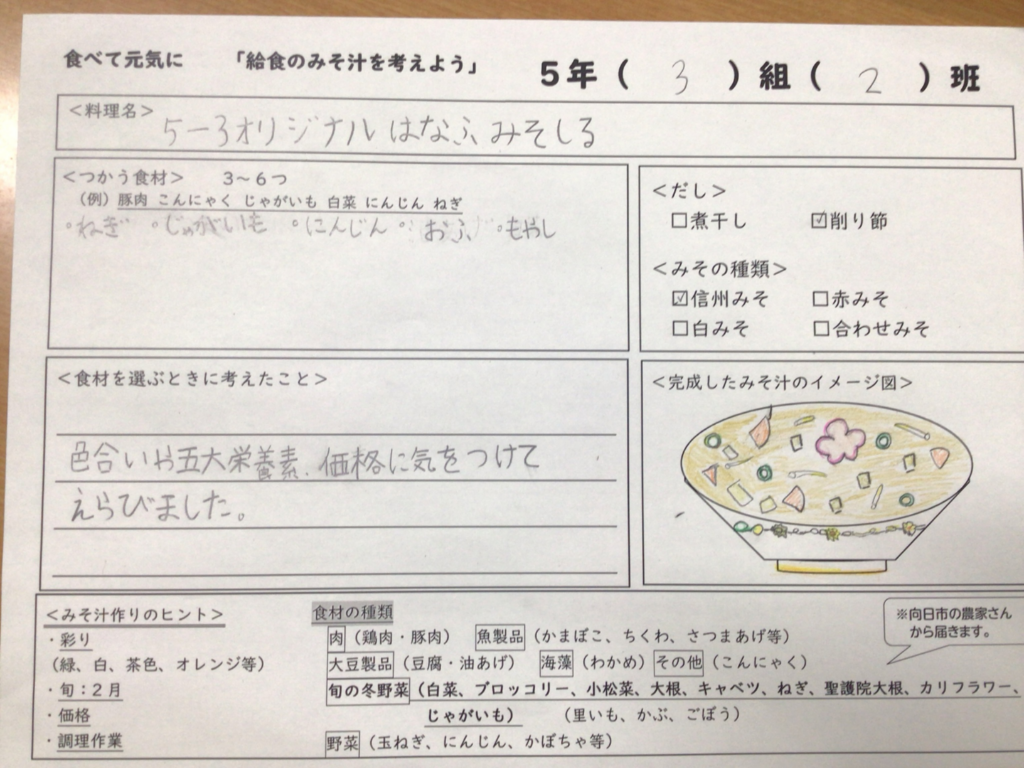 食べて元気に 「給食のみそ汁を考えよう」 5年（ 3 ）組（ 2 ）班
＜料理名＞
5-3オリジナルはなふみそしる
＜つかう食材＞ 3～6つ
（例）豚肉 こんにゃく じゃがいも 白菜 にんじん ねぎ
・ねぎ ・じゃがいも ・にんじん ・おふ ・もやし
＜だし＞
□煮干し ☑削り節
＜みその種類＞
☑信州みそ □赤みそ
□白みそ □合わせみそ
＜食材を選ぶときに考えたこと＞
色合いや五大栄養素、価格に気をつけて
えらびました。
＜完成したみそ汁のイメージ図＞
＜みそ汁作りのヒント＞
・彩り
（緑、白、茶色、オレンジ等）
・旬：2月
・価格
・調理作業
食材の種類
肉（鶏肉・豚肉） 魚製品（かまぼこ、ちくわ、さつまあげ等）
大豆製品（豆腐・油あげ） 海藻（わかめ） その他（こんにゃく）
旬の冬野菜（白菜、ブロッコリー、小松菜、大根、キャベツ、ねぎ、聖護院大根、カリフラワー、
じゃがいも） （里いも、かぶ、ごぼう）
野菜（玉ねぎ、にんじん、かぼちゃ等）
※向日市の農家さん
から届きます。